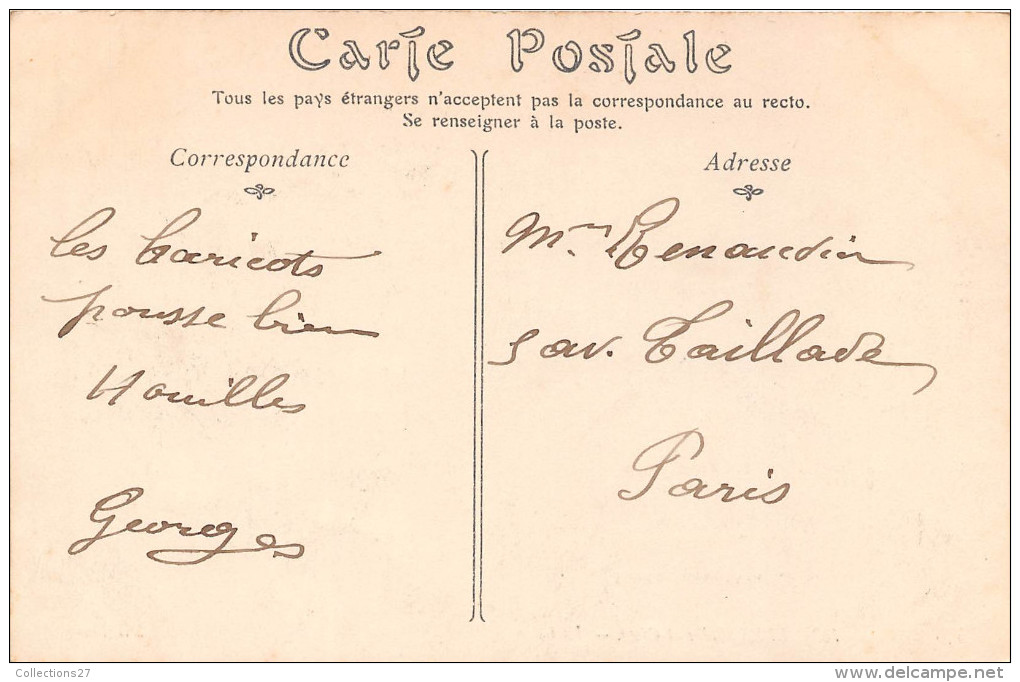 Carte Postale
Tous les pays étrangers n'acceptent pas la correspondance au recto.
Se renseigner à la poste.
Correspondance
les haricots
pousse bien
Houilles
Georges
Adresse
Mr Renaudin
5 av. Taillade
Paris
Collections27
http://www.delcampe.net